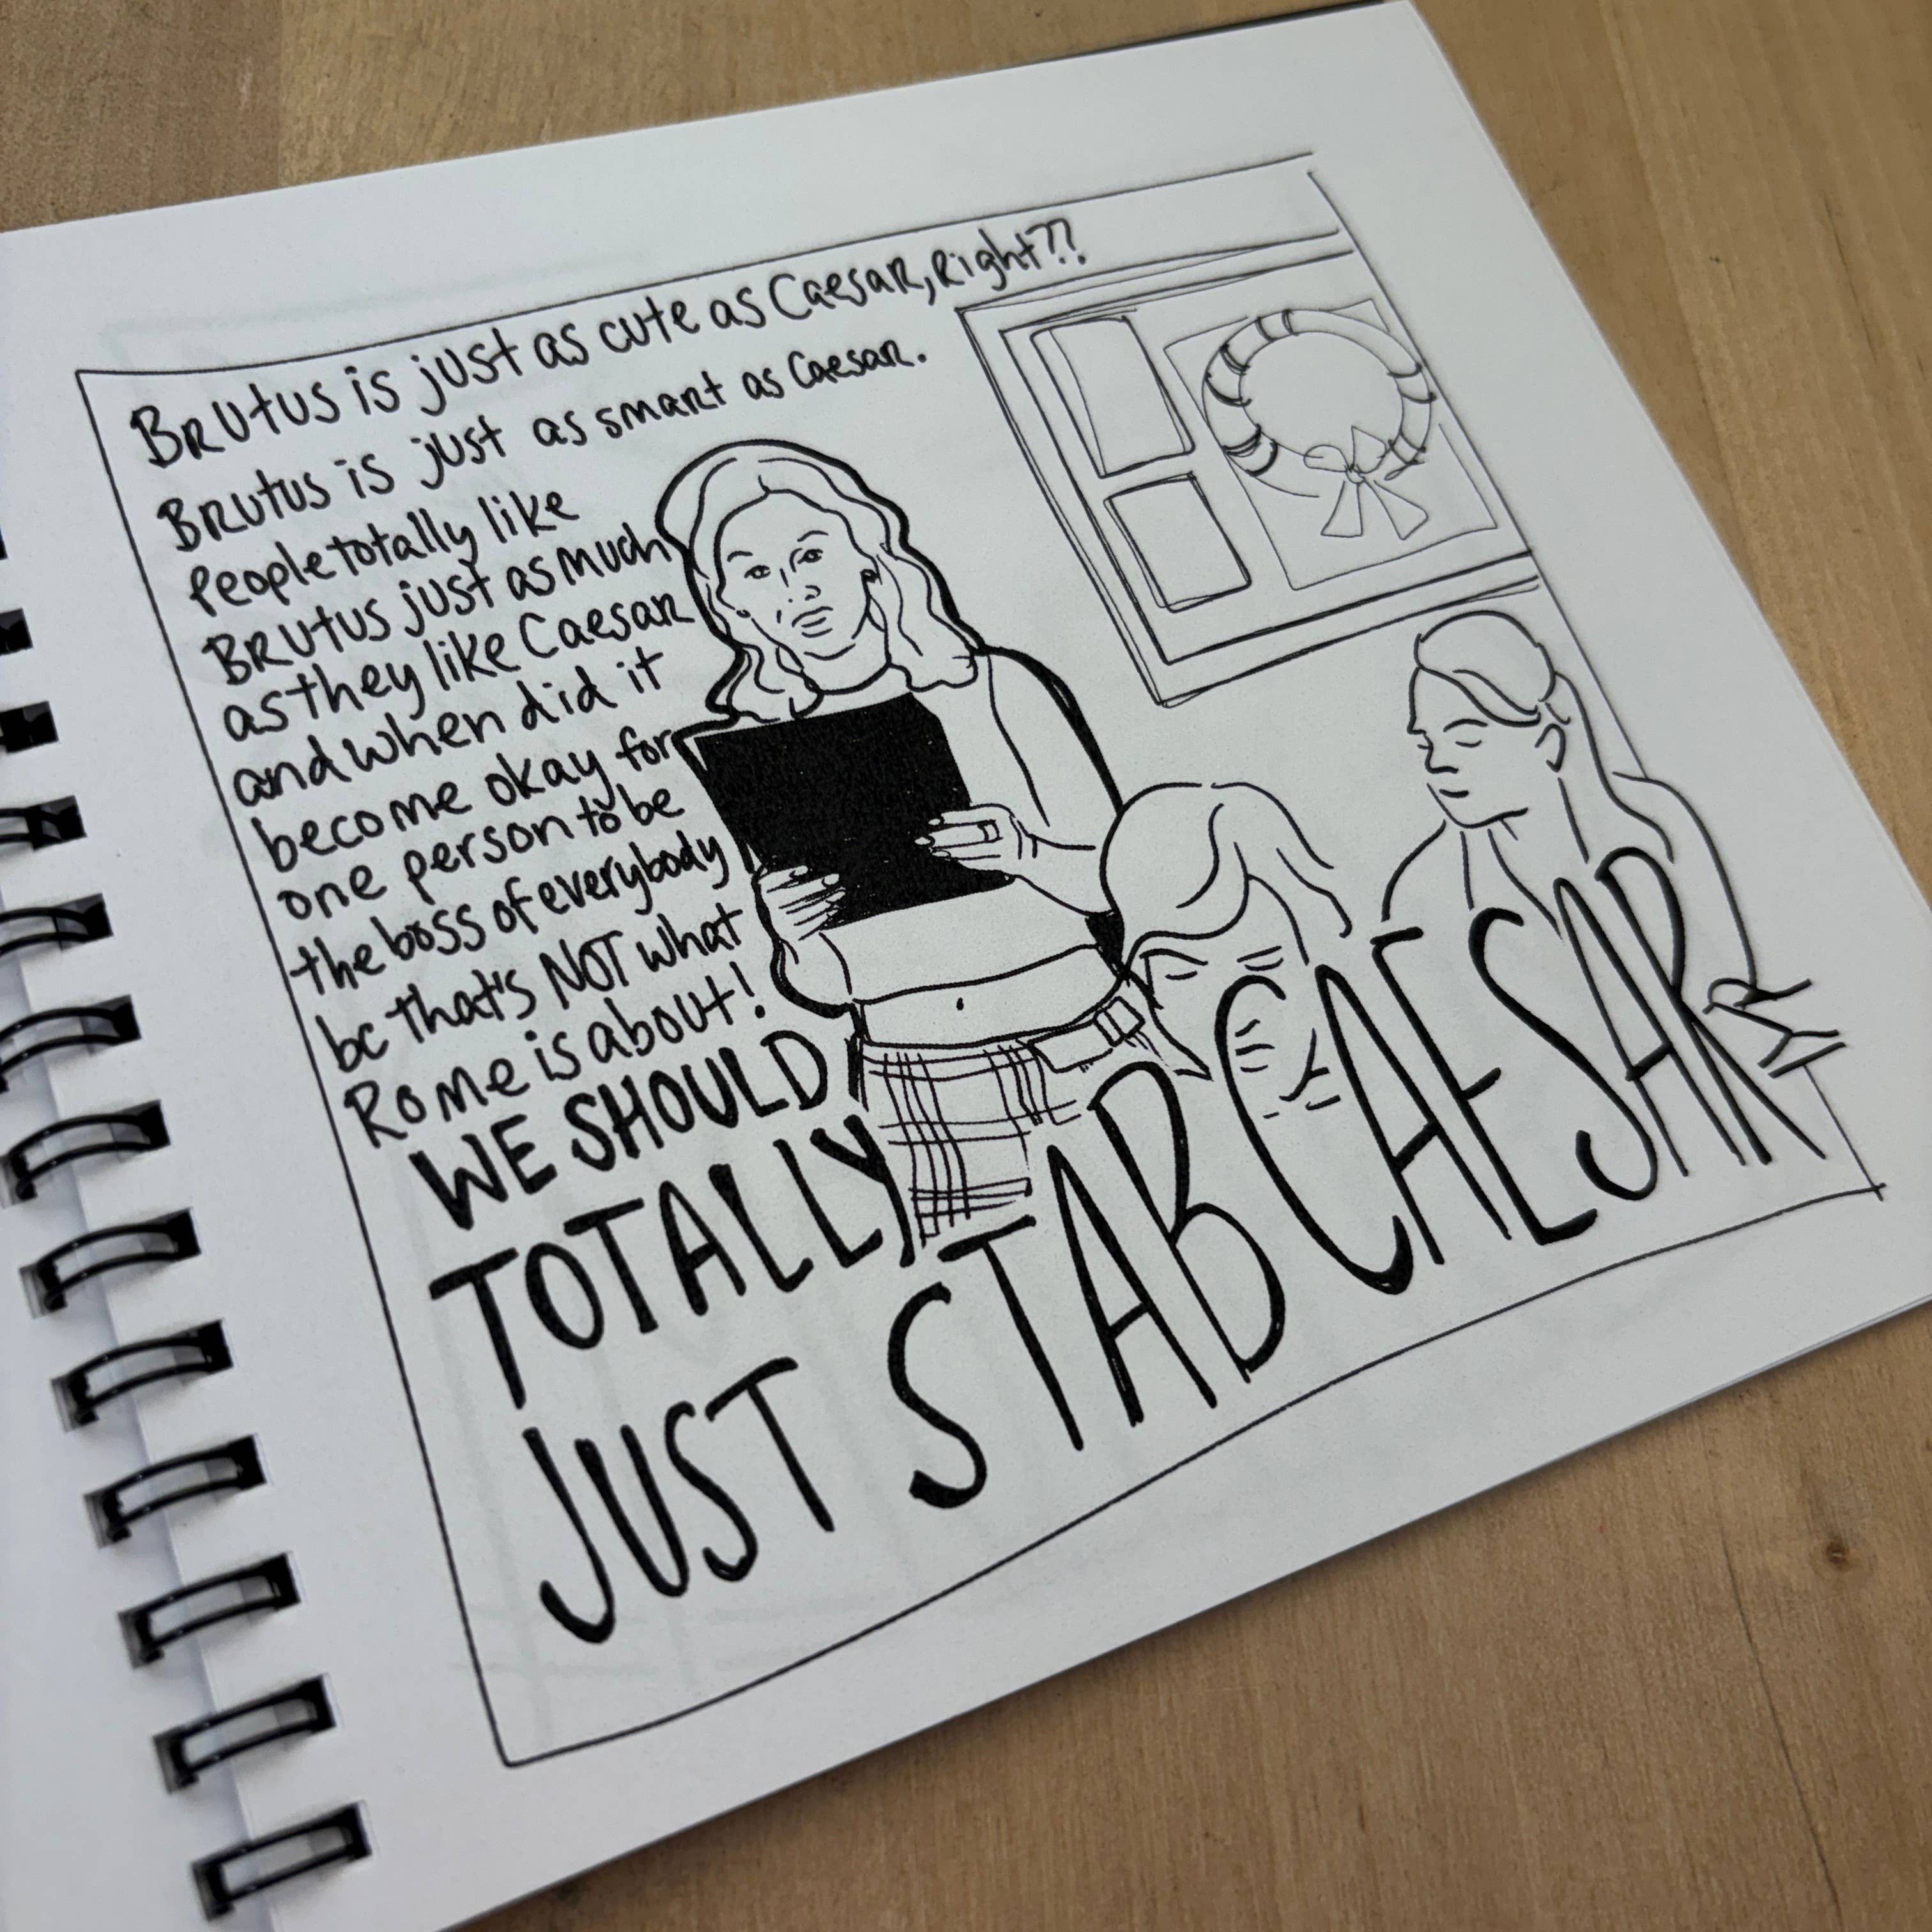 BRUtUS is just as cute as Caesar, Right??
BRUtUS is just as smart as Caesar.
People totally like
BRUtUS just as much
as they like Caesar
and when did it
become okay for
one person to be
the boss of everybody
bc that's NOT what
Rome is about!
WE SHOULD
TOTALLY
JUST STAB CAESAR